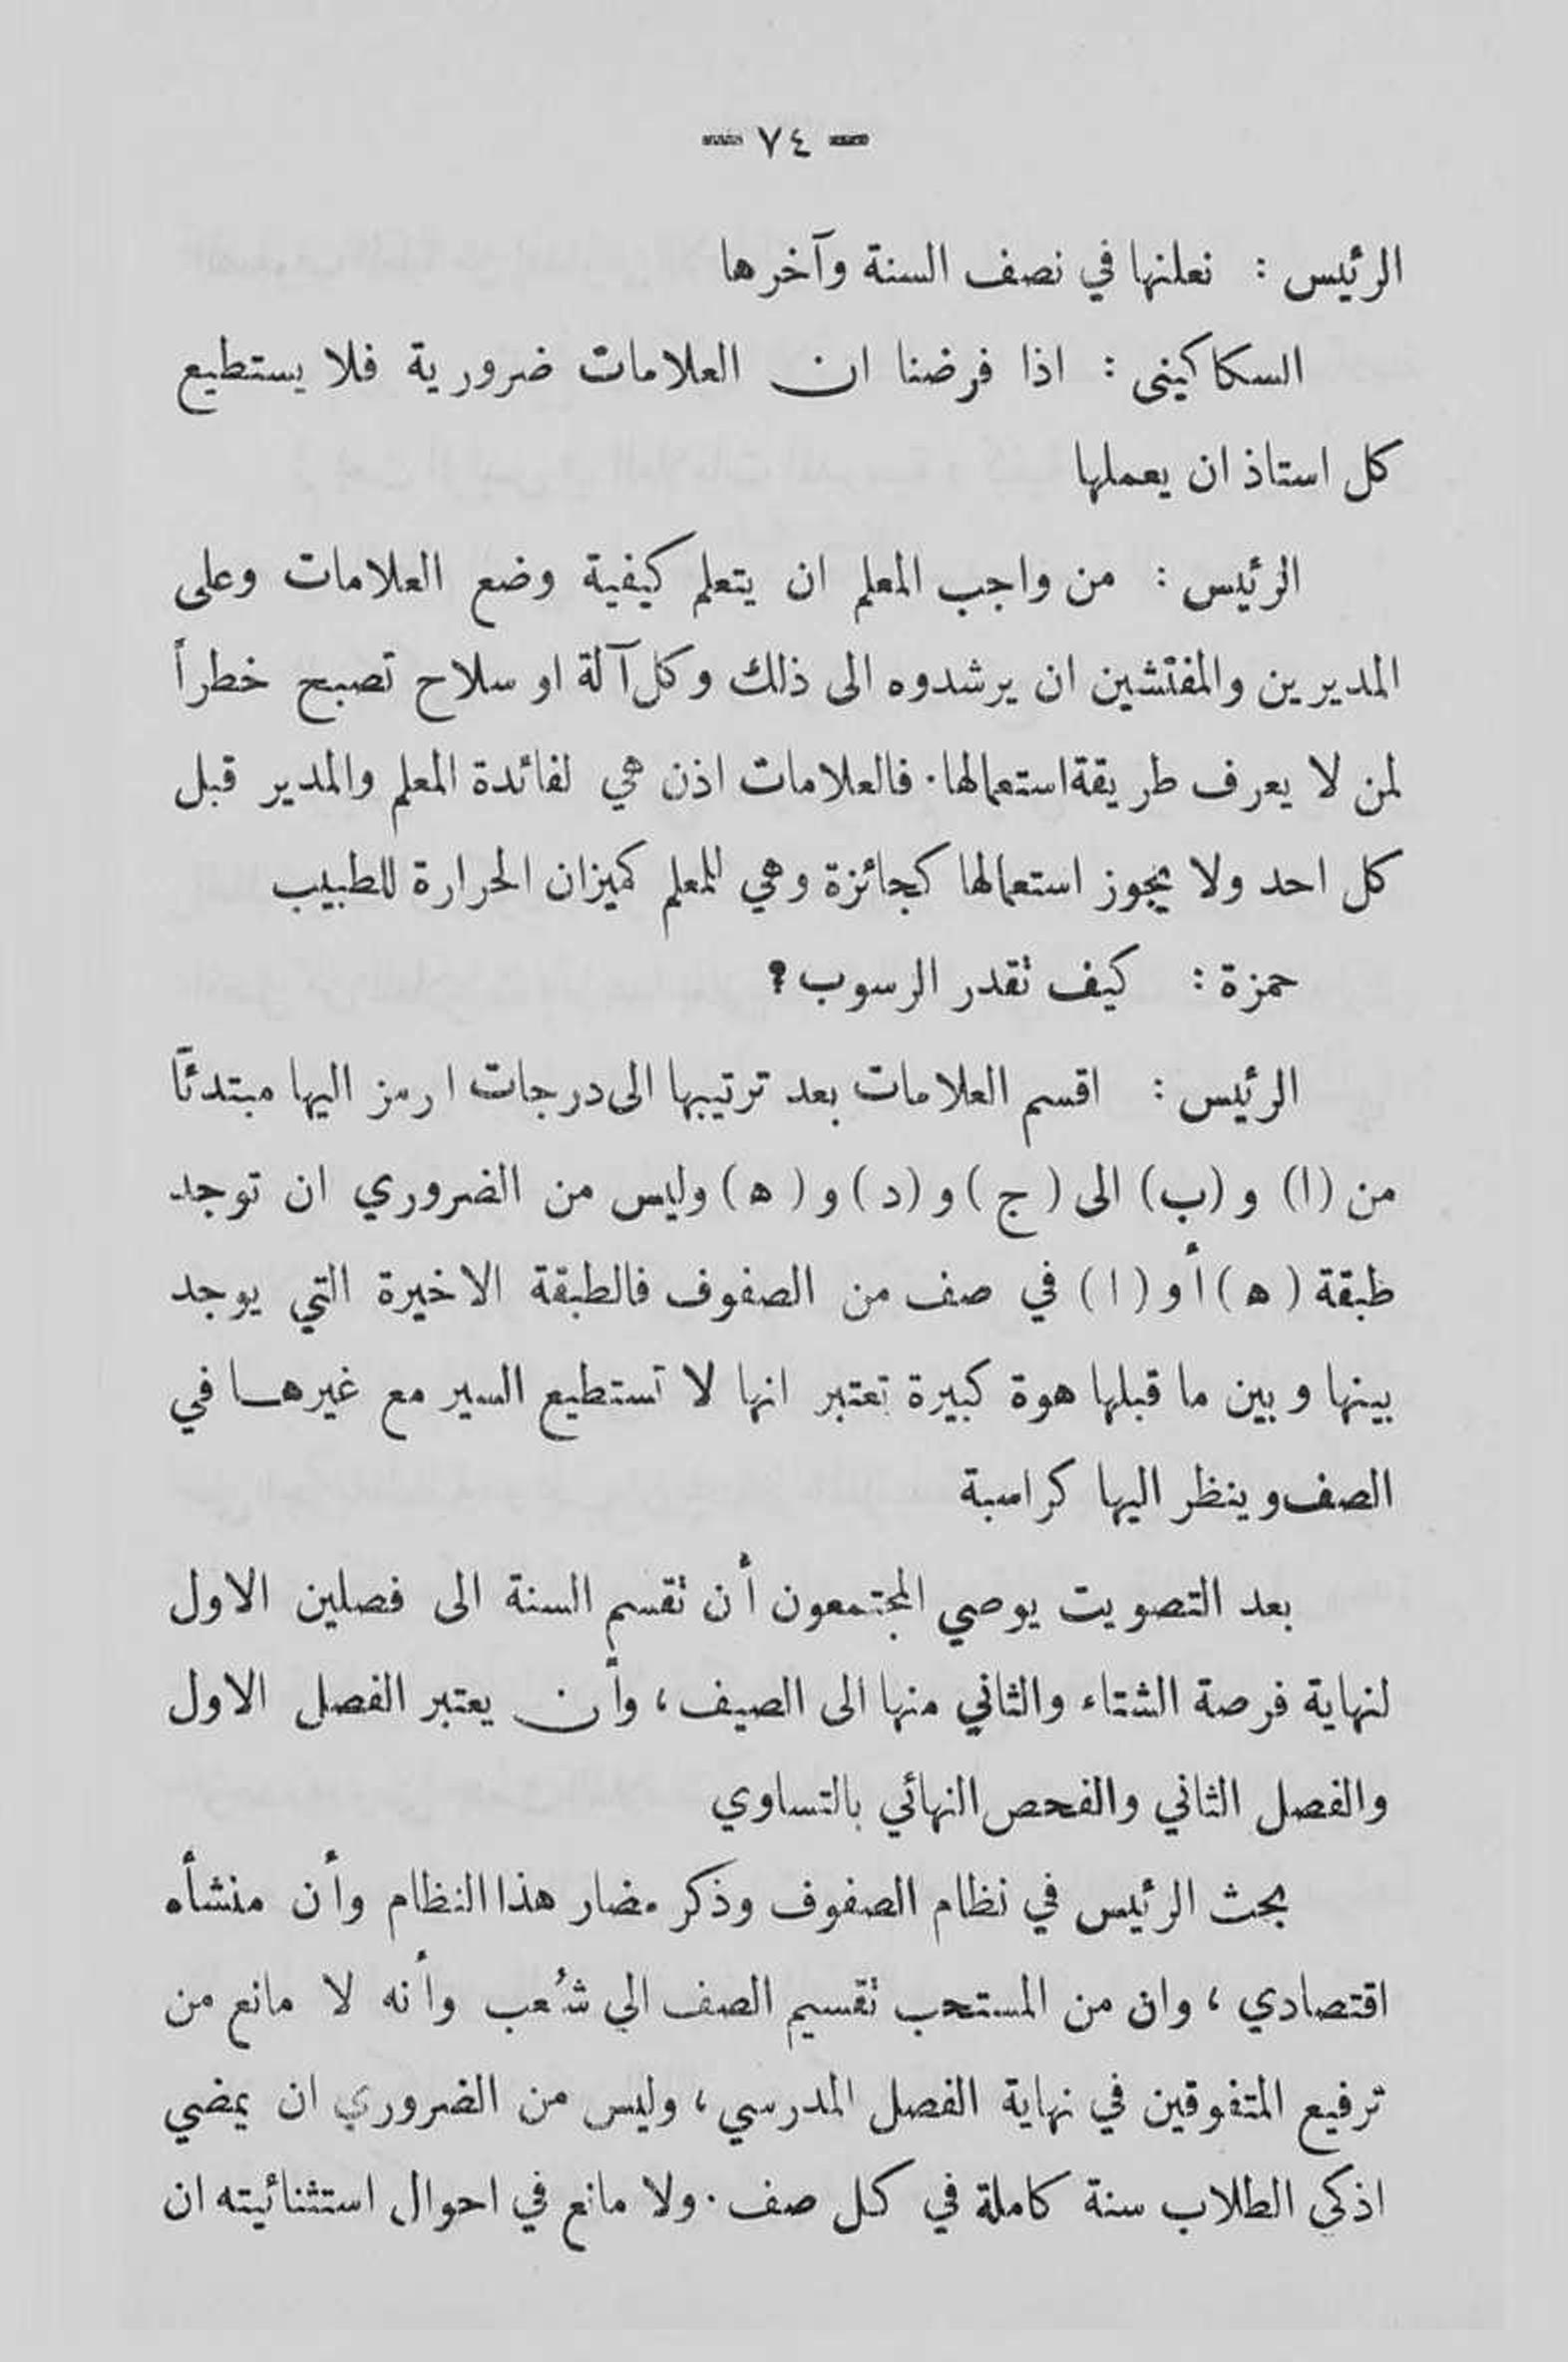 — ٧٤ —
الرئيس : نعلنها في نصف السنة وآخرها
السكاكيني : اذا فرضنا ان العلامات ضرورية فلا يستطيع
كل استاذ ان يعملها
الرئيس : من واجب المعلم ان يتعلم كيفية وضع العلامات وعلى
المديرين والمفتشين ان يرشدوه الى ذلك وكل آلة او سلاح تصبح خطراً
لمن لا يعرف طريقة استعمالها . فالعلامات اذن هي لفائدة المعلم والمدير قبل
كل احد ولا يجوز استعمالها كجائزة وهي للمعلم كميزان الحرارة للطبيب
حمزة : كيف نقدر الرسوب ؟
الرئيس : اقسم العلامات بعد ترتيبها الى درجات ارمز اليها مبتدئاً
من (ا) و (ب) الى (ج) و (د) و (ه) وليس من الضروري ان توجد
طبقة (ه) أو (ا) في صف من الصفوف فالطبقة الاخيرة التي يوجد
بينها وبين ما قبلها هوة كبيرة تعتبر انها لا تستطيع السير مع غيرها في
الصف وينظر اليها كراسبة
بعد التصويت يوصي المجتمعون أن نقسم السنة الى فصلين الاول
لنهاية فرصة الشتاء والثاني منها الى الصيف ، وأن يعتبر الفصل الاول
والفصل الثاني والفحص النهائي بالتساوي
بحث الرئيس في نظام الصفوف وذكر مضار هذا النظام وأن منشأه
اقتصادي ، وان من المستحب نقسيم الصف الي شُعب وأنه لا مانع من
ترفيع المتفوقين في نهاية الفصل المدرسي ، وليس من الضروري ان يمضي
اذكى الطلاب سنة كاملة في كل صف . ولا مانع في احوال استثنائيته ان